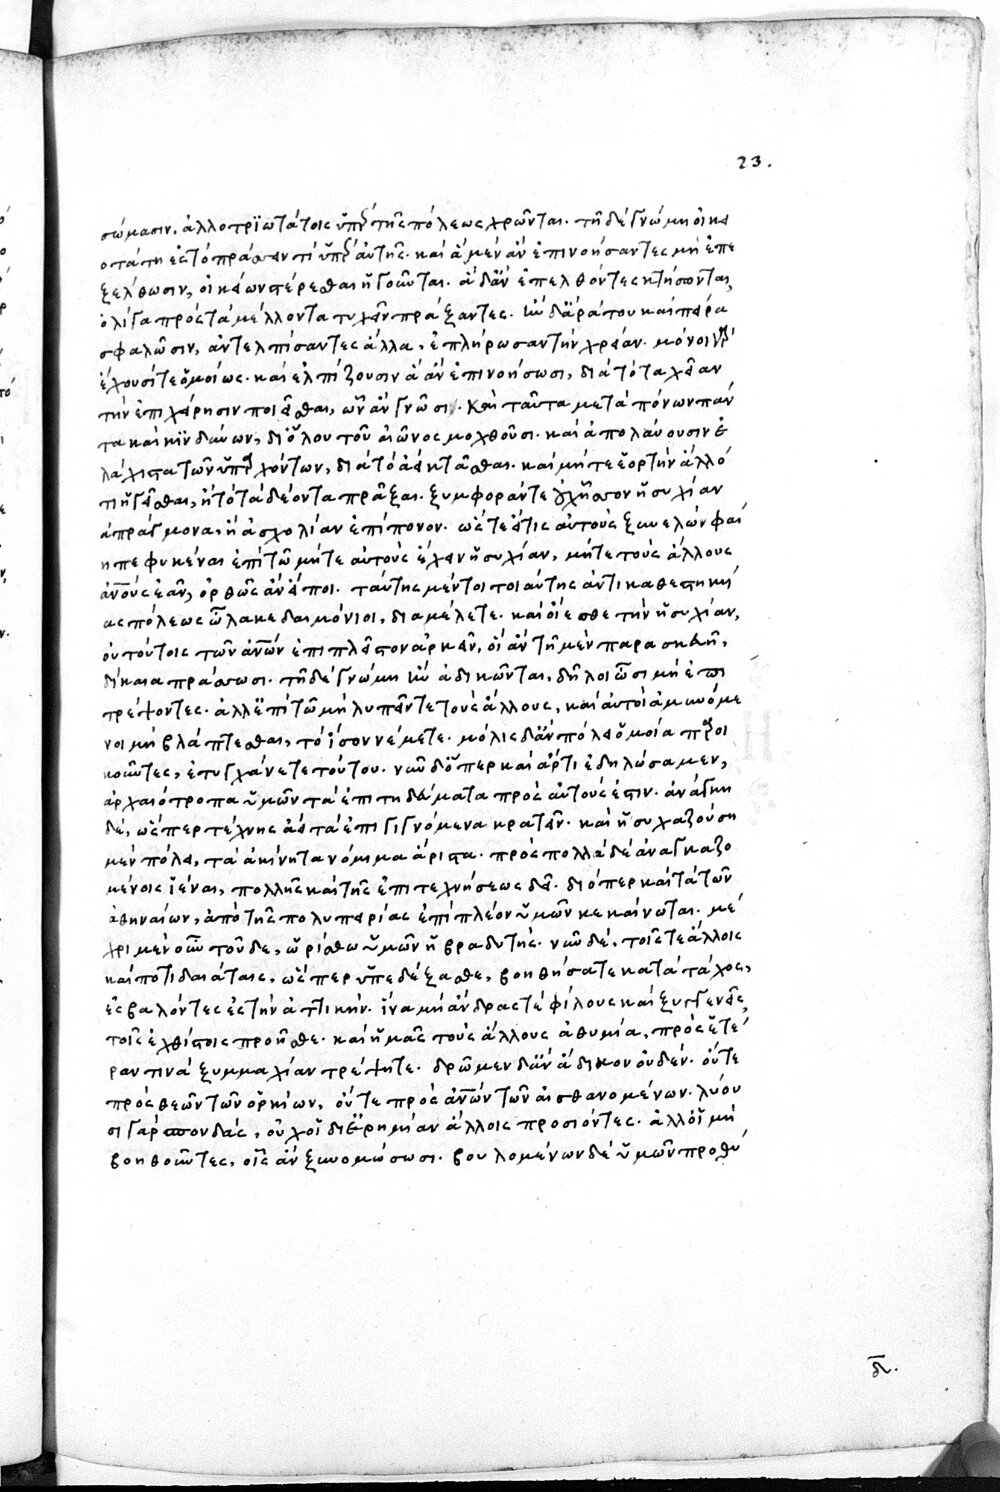 23.
σώμασιν, ἀλλοτριωτάτοις ὑπὲρ τῆς πόλεως χρῶνται. τῇ δὲ γνώμῃ οἰκει
οτάτῃ ἐς τὸ πράσσειν τί ὑπὲρ αὐτῆς. καὶ ἃ μὲν ἂν ἐπινοήσαντες μὴ ἐπε
ξέλθωσιν, οἰκείων στέρεσθαι ἡγοῦνται. ἃ δ' ἂν ἐπελθόντες κτήσωνται,
ὀλίγα πρὸς τὰ μέλλοντα τυχεῖν πράξαντες. ἢν δ' ἄρα του καὶ πείρα
σφαλῶσιν, ἀντελπίσαντες ἄλλα, ἐπλήρωσαν τὴν χρείαν. μόνοι γὰρ
ἔχουσί τε ὁμοίως. καὶ ἐλπίζουσιν ἃ ἂν ἐπινοήσωσι, διὰ τὸ ταχεῖαν
τὴν ἐπιχείρησιν ποιεῖσθαι, ὧν ἂν γνῶσι. καὶ ταῦτα μετὰ πόνων πάν
τα καὶ κινδύνων, δι' ὅλου τοῦ αἰῶνος μοχθοῦσι. καὶ ἀπολαύουσιν ἐ
λάχιστα τῶν ὑπαρχόντων, διὰ τὸ ἀεὶ κτᾶσθαι. καὶ μήτε ἑορτὴν ἄλλό
τι ἡγεῖσθαι, ἢ τὸ τὰ δέοντα πρᾶξαι. ξυμφοράν τε οὐχ ἧσσον ἡσυχίαν
ἀπράγμονα, ἢ ἀσχολίαν ἐπίπονον. ὥστε εἴ τις αὐτοὺς ξυνελὼν φαί
η πεφυκέναι ἐπὶ τῷ μήτε αὐτοὺς ἔχειν ἡσυχίαν, μήτε τοὺς ἄλλους
ἀν̅ο̅υς ἐᾶν, ὀρθῶς ἂν εἴποι. ταύτης μέντοι τοιαύτης ἀντικαθεστηκυί
ας πόλεως ὦ λακεδαιμόνιοι, διαμέλετε. καὶ οἴεσθε τὴν ἡσυχίαν,
οὐ τούτοις τῶν ἀν̅ω̅ν ἐπιπλεῖστον ἀρκεῖν, οἳ ἂν τῇ μὲν παρασκευῇ,
δίκαια πράσσωσι. τῇ δὲ γνώμῃ ἢν ἀδικῶνται, δῆλοι ὦσι μὴ ἐπι
τρέψοντες. ἀλλ' ἐπὶ τῷ μὴ λυπεῖν τε τοὺς ἄλλους, καὶ αὐτοὶ ἀμυνόμε
νοι μὴ βλάπτεσθαι, τὸ ἴσον νέμετε. μόλις δ' ἂν πόλει ὁμοία παροι
κοῦντες, ἐτυγχάνετε τούτου. νῦν δ' ὅπερ καὶ ἄρτι ἐδηλώσαμεν,
ἀρχαιότροπα ὑμῶν τὰ ἐπιτηδεύματα πρὸς αὐτούς ἐστιν. ἀνάγκη
δὲ, ὥσπερ τέχνης ἀεὶ τὰ ἐπιγιγνόμενα κρατεῖν. καὶ ἡσυχαζούσῃ
μὲν πόλει, τὰ ἀκίνητα νόμιμα ἄριστα. πρὸς πολλὰ δὲ ἀναγκαζο
μένοις ἰέναι, πολλῆς καὶ τῆς ἐπιτεχνήσεως δεῖ. διόπερ καὶ τὰ τῶν
ἀθηναίων, ἀπὸ τῆς πολυπειρίας ἐπὶ πλέον ὑμῶν κεκαίνωται. μέ
χρι μὲν οὖν τοῦδε, ὡρίσθω ὑμῶν ἡ βραδυτής. νῦν δὲ, τοῖς τε ἄλλοις
καὶ ποτιδαιάταις, ὥσπερ ὑπεδέξασθε, βοηθήσατε κατὰ τάχος,
ἐσβαλόντες ἐς τὴν ἀττικήν. ἵνα μὴ ἄνδρας τὲ φίλους καὶ ξυγγενεῖς,
τοῖς ἐχθίστοις προῆσθε. καὶ ἡμᾶς τοὺς ἄλλους ἀθυμία, πρὸς ἑτέ
ραν τινὰ ξυμμαχίαν τρέψητε. δρῷμεν δ' ἂν ἄδικον οὐδέν. οὔτε
πρὸς θεῶν τῶν ὁρκίων, οὔτε πρὸς ἀν̅ω̅ν τῶν αἰσθανομένων. λύου
σι γὰρ σπονδάς, οὐχ οἱ δι' ἐρημίαν ἄλλοις προσιόντες. ἀλλ' οἱ μὴ
βοηθοῦντες, οἷς ἂν ξυνομόσωσι. βουλομένων δὲ ὑμῶν προθύ
δ.